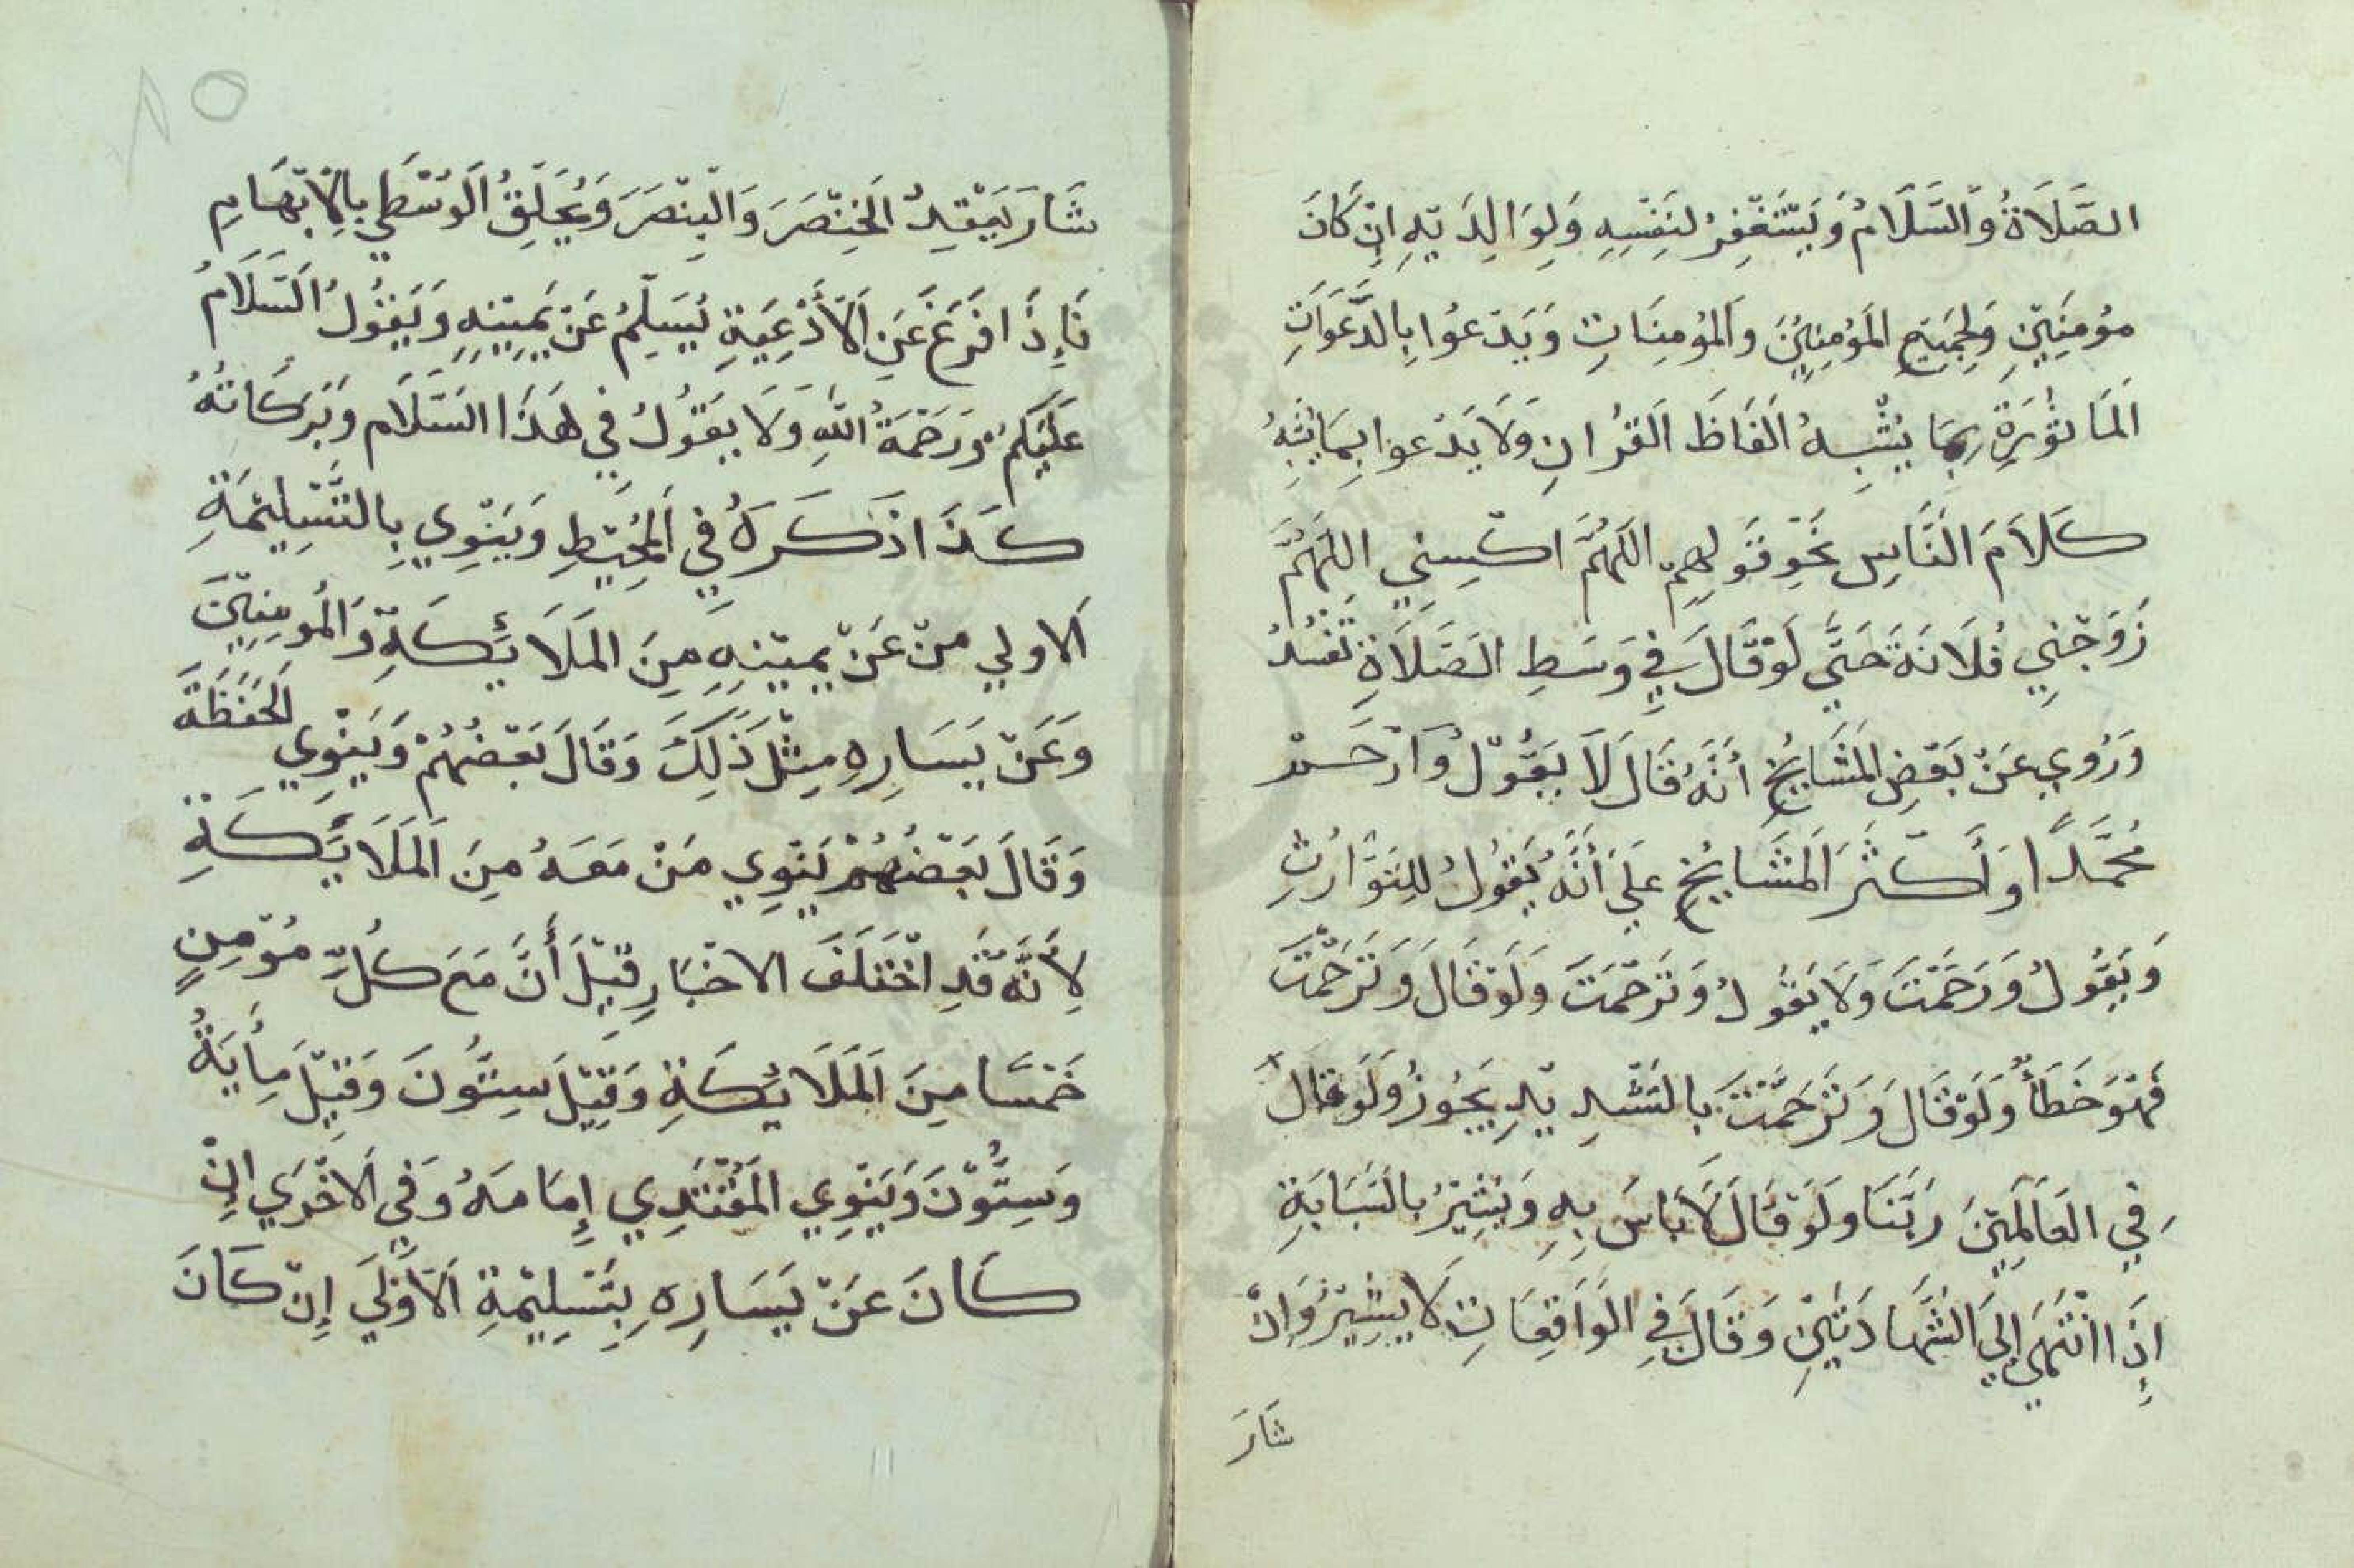 الصَّلَاةُ وَالسَّلَامُ وَيَسْتَغْفِرُ لِنَفْسِهِ وَلِوَالِدَيْهِ اِنْ كَانَ
مُؤمِنَيْنِ وَلِجَمِيْعِ المُؤمِنِيْنَ وَالمُؤمِنَاتِ وَيَدْعُوا بِالدَّعَوَاتِ
المَاثُوْرَةِ بِمَا يُشْبِهُ اَلفَاظَ القُرْانِ وَلَا يَدْعوا بِمَا يُشْبِهُ
كَلَامَ النَّاسِ نَحْوِ قَولِهِمْ اللَّهُمَّ اكْسِنِي اللَّهُمَّ
زَوِّجْنِي فُلَانَةَ حَتَّى لَوْ قَالَ فِي وَسَطِ الصَّلَاةِ تَفْسُدُ
وَرُوِي عَنْ بَعْضِ المَشَايِخِ اَنَّهُ قَالَ لَا يَقُوْلُ وَارْحَمْ
مُحَمَّدًا وَأَكْثَرُ المَشَايِخِ عَلَى أَنَّهُ يَقُوْلُ لِلتَّوَارُثِ
وَيَقُولُ وَرَحَمْتَ وَلَا يَقُولُ وَتَرَحَّمْتَ وَلَوْ قَالَ وَتَرَحَمْتَ
فَهُوَ خَطَأٌ وَلَوْ قَالَ وَتَرَحَّمْتَ بِالتَّشْدِيْدِ يَجُوْزُ وَلَوْ قَالَ
فِي العَالَمِيْنَ رَبَّنَا وَلَوْ قَالَ لَا بَاسَ بِهِ وَيُشِيْرُ بِالسَّبَابَةِ
إِذَا انْتَهَى اِلَى الشَّهَادَتَيْنِ وَقَالَ فِي الوَاقِعَاتِ لَا يُشِيْرُ وَاِنْ
شَارَ
٨٥
شَارَ يَعْقِدُ الخِنْصَرَ وَالْبِنْصَرَ وَيُحَلِّقُ الوُسْطَي بِالْاِبْهَامِ
فَاِذَا فَرَغَ عَنِ الْأَدْعِيَةِ يُسَلِّمُ عَنْ يَمِيْنِهِ وَيَقُولُ السَّلَامُ
عَلَيْكُمْ وَرَحْمَةُ اللهِ وَلَا يَقُوْلُ فِي هَذَا السَّلَام وَبَرَكَاتُهُ
كَذَا ذَكَرَهُ فِي المُحِيْطِ وَيَنْوِي بِالتَّسْلِيْمَةِ
الاولي مَنْ عَنْ يَمِيْنِهِ مِنَ المَلَائِكَةِ وَالمُومِنِيْنَ
وَعَنْ يَسَارِهِ مِثْلَ ذَلِكَ وَقَالَ بَعْضُهُمْ وَيَنْوِي الحَفَظَةَ
وَقَالَ بَعْضُهُمْ يَنْوِي مَنْ مَعَهُ مِنَ المَلَايِكَةِ
لِاَنَّهُ قَدِ اخْتَلَفَ الاخْبَارِ قِيْلَ أَنَّ مَعَ كُلِّ مُؤْمِنٍ
خَمْسًا مِنَ المَلَايِكَةِ وَقِيْلَ سِتُّونَ وَقِيْلَ مِأيَةُ
وَسِتُّوْنَ وَيَنْوِي المُقْتَدِي إِمَامَهُ وَفِي الاخْرَي اِنْ
كَانَ عَنْ يَسَارِهِ بِتَسْلِيْمَةِ الْأُوْلَي إِنْ كَانَ